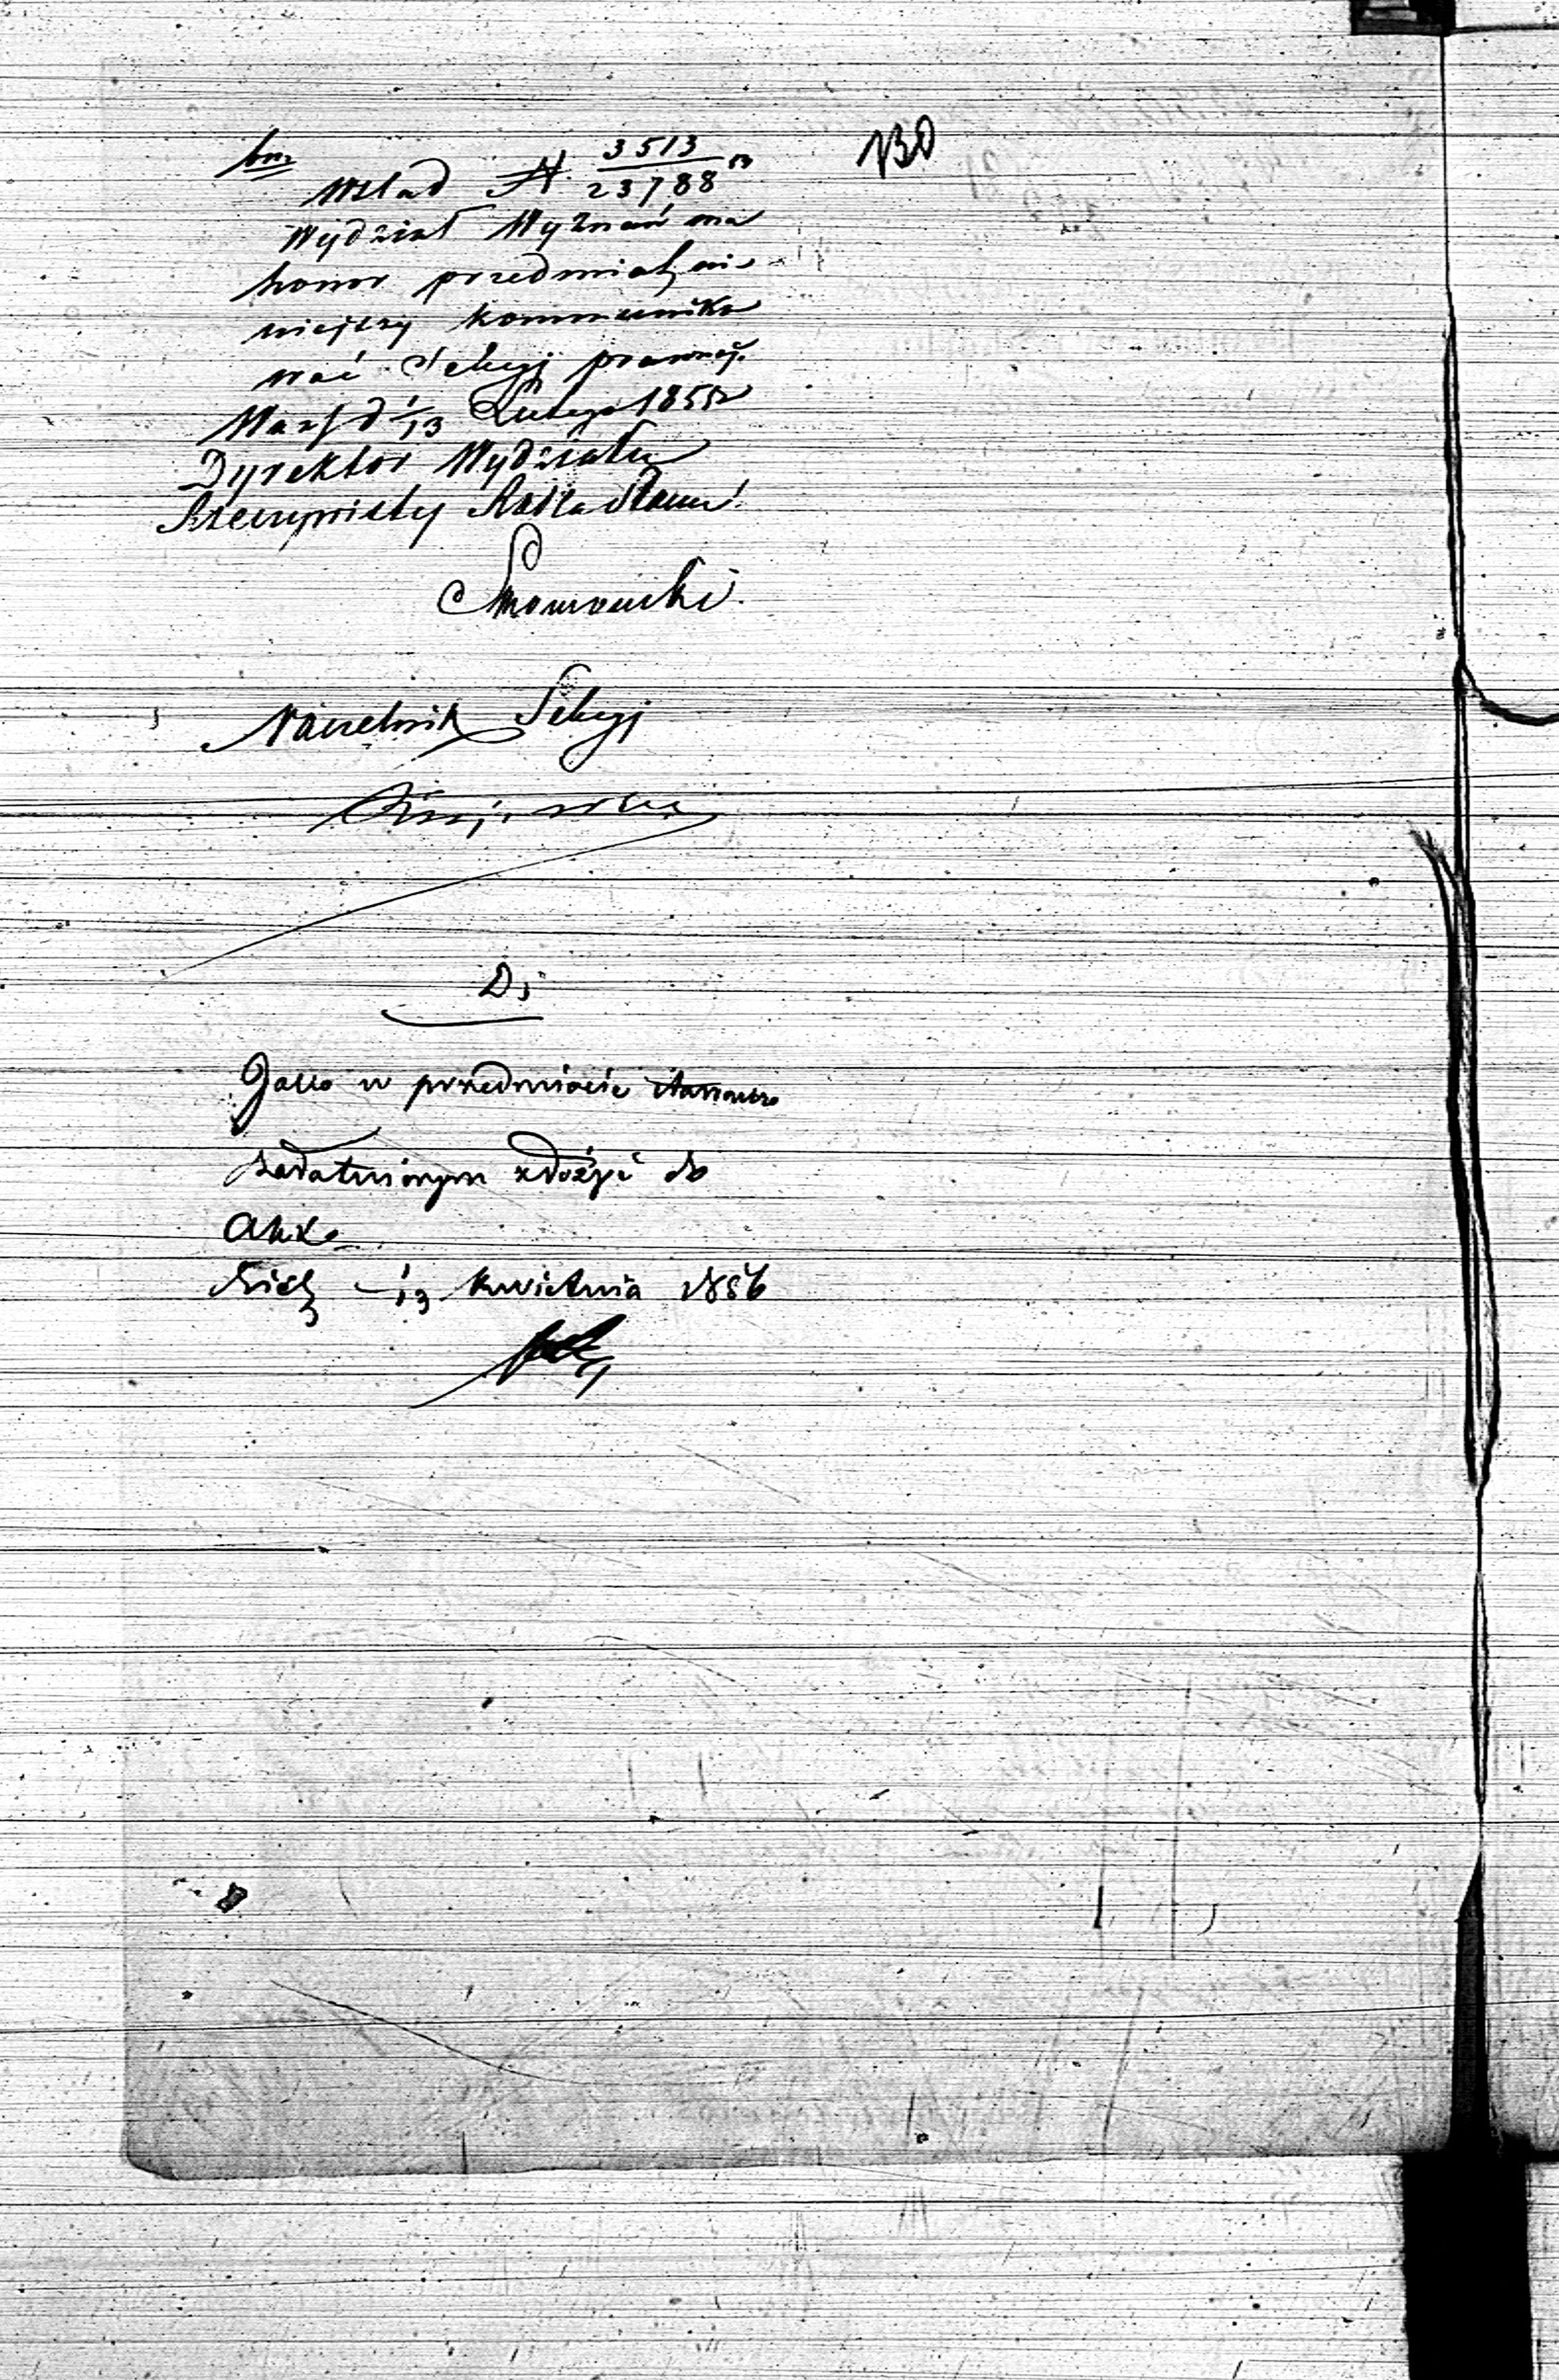 130
W ślad N 3513/23788
Wydział Wyznań ma
honor przedmiot ni-
niejszy kommuniko
wać Sekcyj prawnej.
Warsz d 1/13 Lutego 185
Dyrektor Wydziału
Rzeczywisty Radca Stanu
Naczelnik Sekcyj
Dj
Jako w przedmiocie
załatwionym złożyć do
Akt
1/13 kwietnia 1856